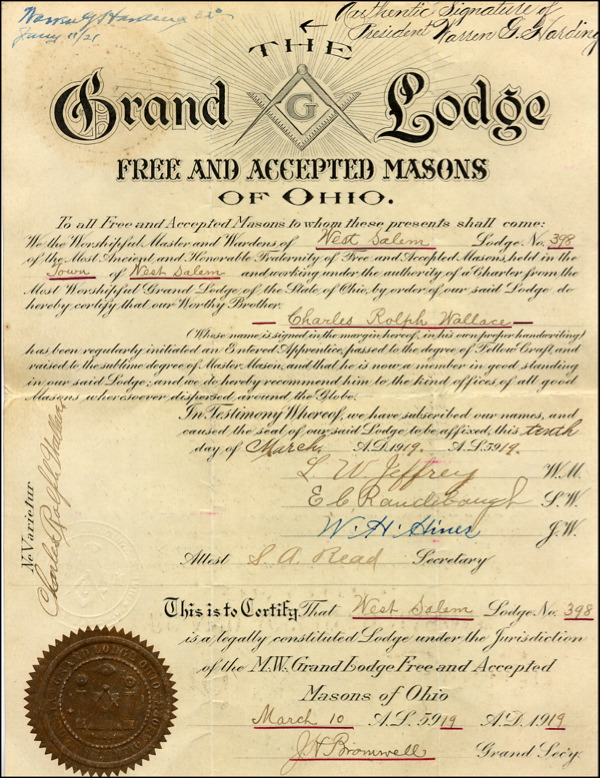 Warren G Harding
Jany 11/21
← Authentic Signature of
President Warren G. Harding
THE
Grand G Lodge
FREE AND ACCEPTED MASONS
OF OHIO.
To all Free and Accepted Masons to whom these presents shall come:
We the Worshipful Master and Wardens of West Salem Lodge No. 398
of the Most Ancient and Honorable Fraternity of Free and Accepted Masons, held in the
Town of West Salem and working under the authority of a Charter from the
Most Worshipful Grand Lodge of the State of Ohio, by order of our said Lodge do
hereby certify that our Worthy Brother.
Charles Rolph Wallace
(Whose name is signed in the margin hereof, in his own proper handwriting)
has been regularly initiated an Entered Apprentice, passed to the degree of Fellow Craft, and
raised to the sublime degree of Master Mason, and that he is now a member in good standing
in our said Lodge; and we do hereby recommend him to the kind offices of all good
Masons wheresoever dispersed around the Globe.
In Testimony Whereof, we have subscribed our names, and
caused the seal of our said Lodge to be affixed, this tenth
day of March, A.D. 1919. A.L. 5919.
L W Jeffrey W.M.
E C Raudebaugh S.W.
W. H. Hiner J.W.
Attest S. A. Read Secretary
Ne Varietur
Charles Rolph Wallace
This is to Certify, That West Salem Lodge No. 398
is a legally constituted Lodge under the Jurisdiction
of the M.W. Grand Lodge Free and Accepted
Masons of Ohio
March 10 A.L. 5919 A.D. 1919
J H Bromwell Grand Sec'y.
GRAND LODGE OHIO